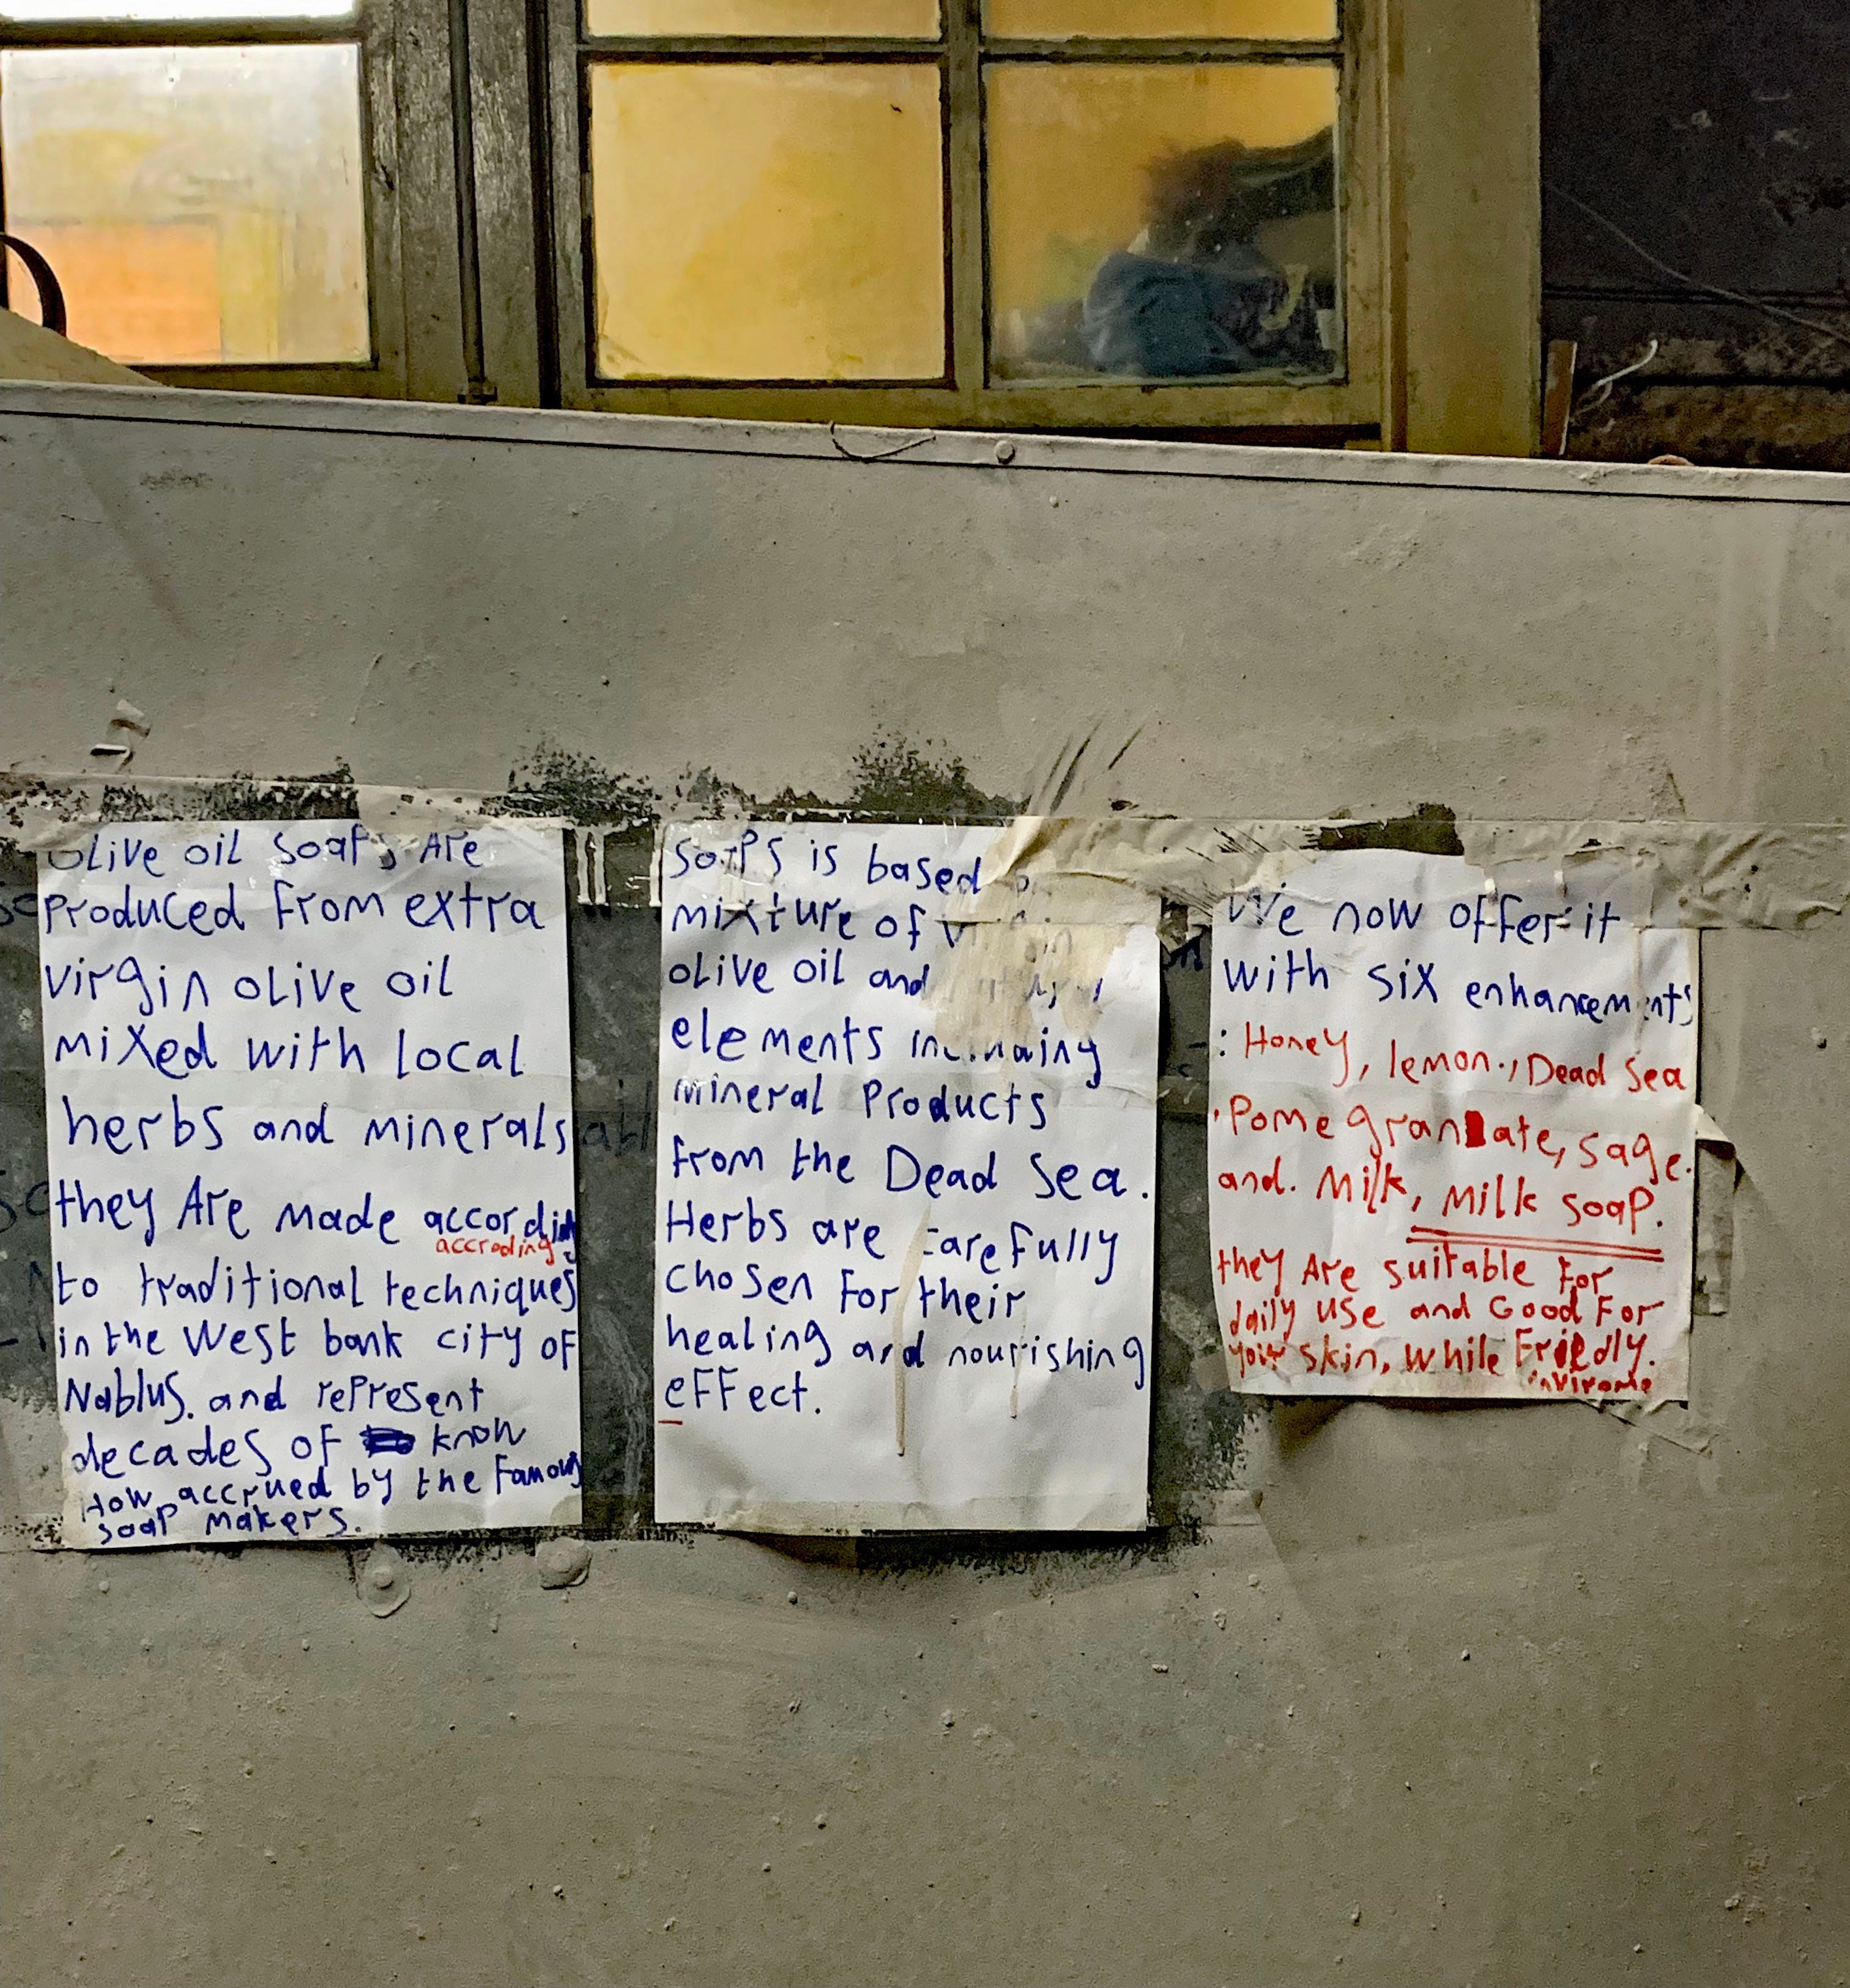 Olive oil soaps Are
Produced from extra
virgin olive oil
mixed with local
herbs and minerals
they Are made according
accroding
to traditional techniques
in the West bank city of
Nablus. and represent
decades of know
How accrued by the Famous
soap makers.
Soaps is based
mixture of
olive oil and
elements including
mineral Products
from the Dead Sea.
Herbs are carefully
chosen For their
healing and nourishing
effect.
We now offer it
with six enhancements
: Honey, lemon., Dead Sea
, Pomegranate, sage.
and. Milk, Milk soap.
they Are suitable For
daily use and Good For
your skin, while Friedly.